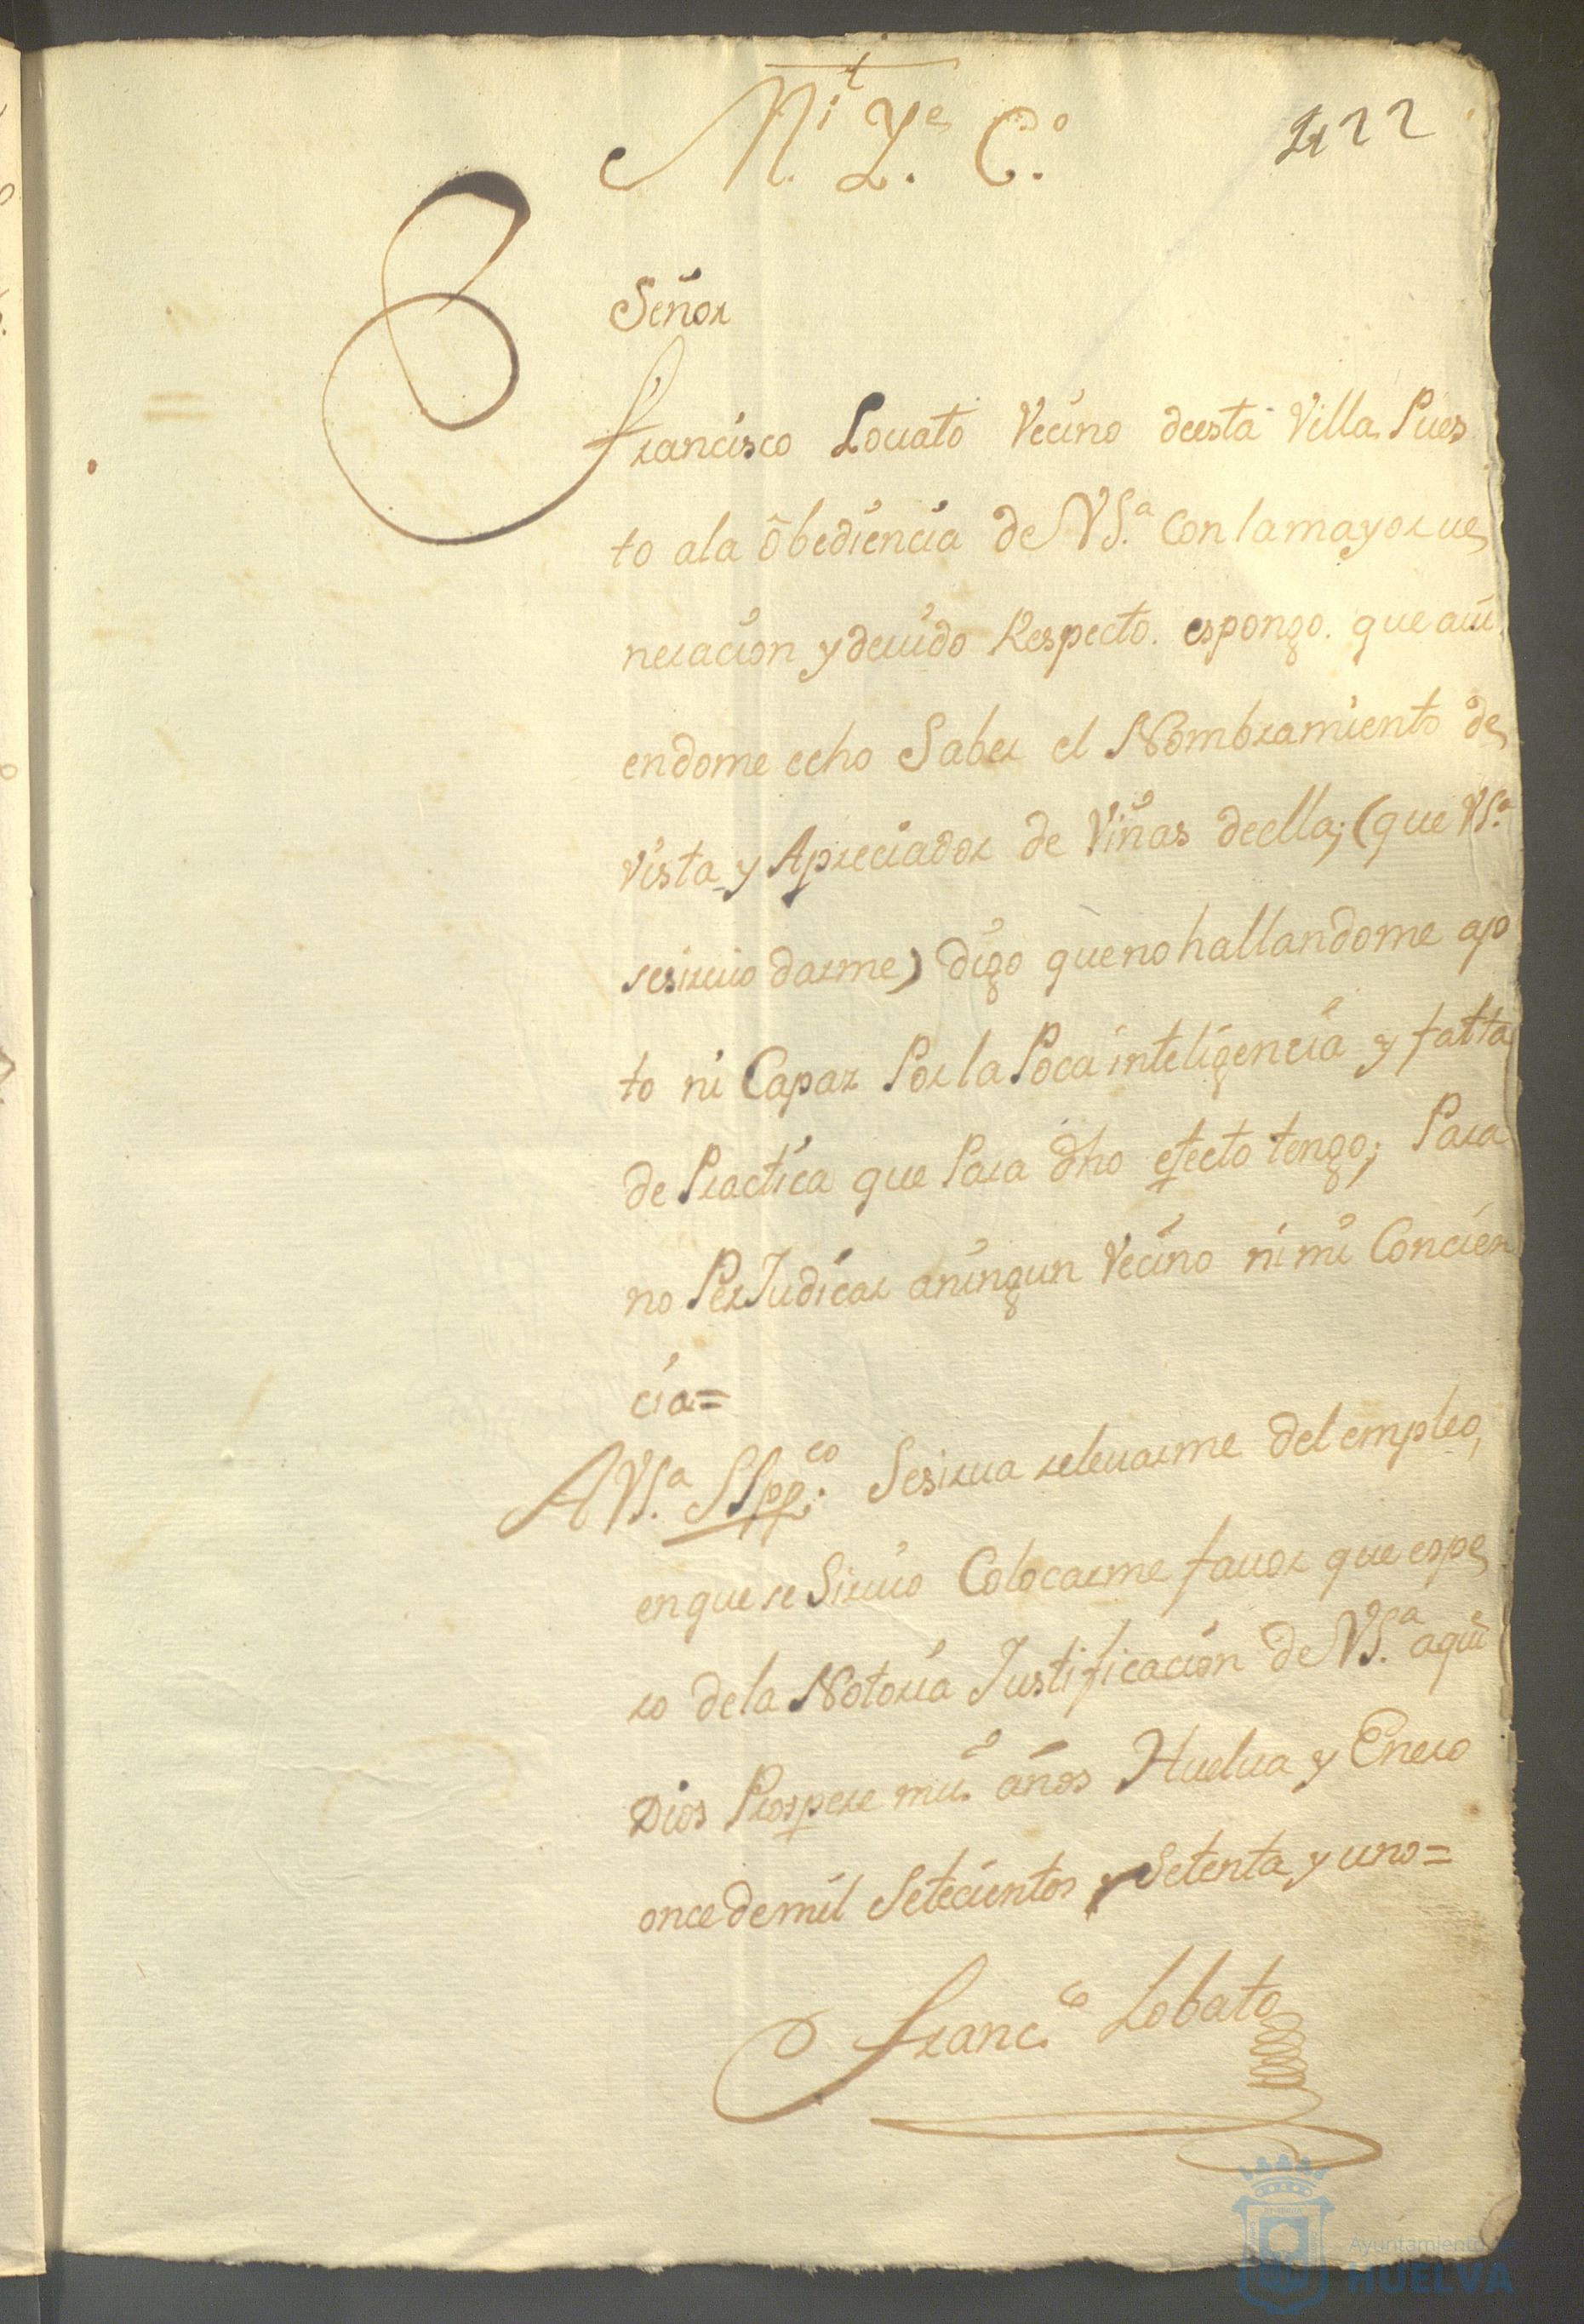 M.ᵗ Y.ᵉ C.º
422
Señor
Francisco Louato Vecino deesta Villa Pues
to ala obediencia de VS.ª Con lamayor ue
neracion y deuido Respecto. espongo. que aui
endome echo Saber el Nombramiento de
Vista y Apreciador de Viñas deella; (que VS.ª
sesiruio darme) digo queno hallandome ap
to ni Capaz Por la Poca inteligencia y falta
de Practica que Para dho efecto tengo; Para
no PerJudicar aningun Vecino ni mi Concien
cia=
A VS.ª SSpp.ᶜᵒ Sesirua releuarme del empleo,
enque se Siruio Colocarme fauor que espe
ro dela Notoria Justificacion de VS.ª aqui
Dios Prospere mu.ˢ años Huelua y Enero
once demil Setecientos y Setenta y uno=
Franc.ᶜᵒ Lobato
Ayuntamiento de
HUELVA